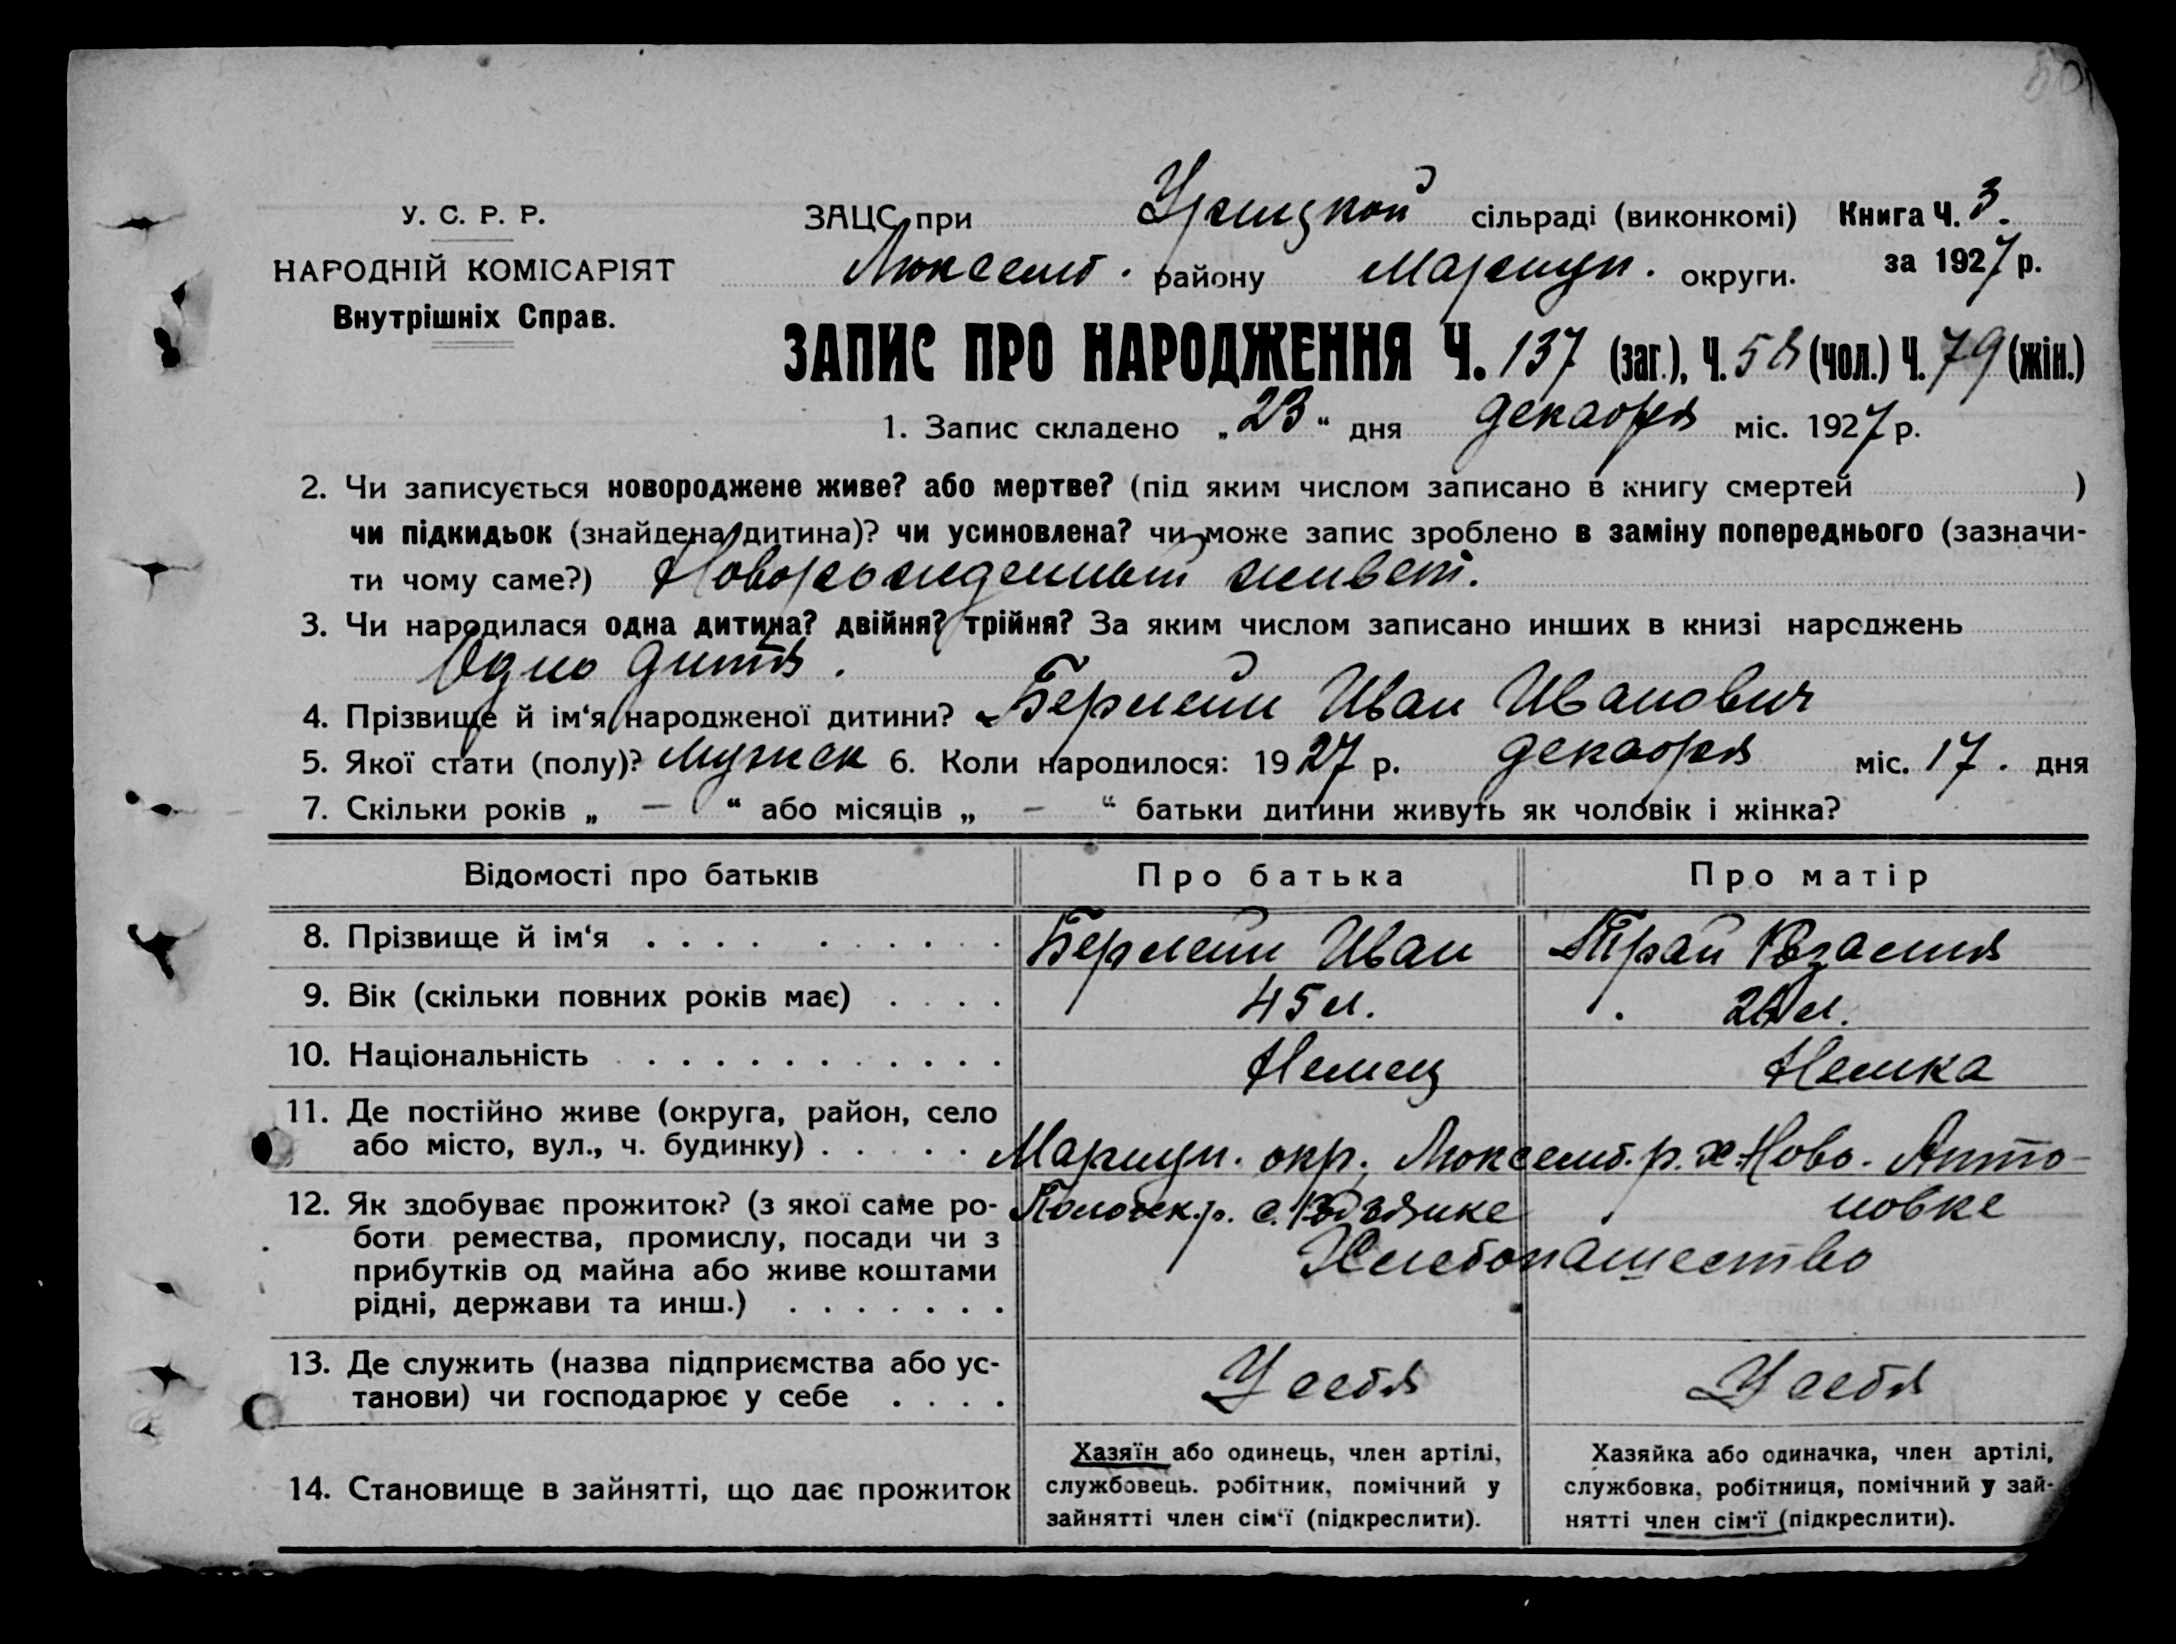 У. С. Р. Р.
НАРОДНІЙ КОМІСАРІЯТ
Внутрішніх Справ.
ЗАЦС при Урицкой сільраді (виконкомі) Книга Ч. 3.
Люксемб. району Мариуп. округи. за 1927 р.
ЗАПИС ПРО НАРОДЖЕННЯ Ч. 137 (заг.), Ч. 58 (чол.) Ч. 79 (жін.)
1. Запис складено „23“ дня декабря міс. 1927 р.
2. Чи записується новороджене живе? або мертве? (під яким числом записано в книгу смертей )
чи підкидьок (знайдена дитина)? чи усиновлена? чи може запис зроблено в заміну попереднього (зазначи-
ти чому саме?) Новорожденный живет.
3. Чи народилася одна дитина? двійня? трійня? За яким числом записано инших в книзі народжень
Одно дитя.
4. Прізвище й ім‘я народженої дитини? Берлейн Иван Иванович
5. Якої стати (полу)? Мужск 6. Коли народилося: 1927 р. декабря міс. 17. дня
7. Скільки років „ — “ або місяців „ — “ батьки дитини живуть як чоловік і жінка?
Відомості про батьків Про батька Про матір
8. Прізвище й ім‘я . . . . . . . . . . Берлейн Иван
9. Вік (скільки повних років має) . . . . 45 л.
10. Національність . . . . . . . . . . . . Немец Немка
11. Де постійно живе (округа, район, село
або місто, вул., ч. будинку) . . . . . Мариуп. окр. Люксемб. р. х. Ново-Анто-
новке
12. Як здобуває прожиток? (з якої саме ро-
боти ремества, промислу, посади чи з
прибутків од майна або живе коштами
рідні, держави та инш.) . . . . . . . Хлебопашество
13. Де служить (назва підприємства або ус-
танови) чи господарює у себе . . . . У себя У себя
14. Становище в зайнятті, що дає прожиток
Хазяїн або одинець, член артілі,
службовець. робітник, помічний у
зайнятті член сім‘ї (підкреслити).
Хазяйка або одиначка, член артілі,
службовка, робітниця, помічний у зай-
нятті член сім‘ї (підкреслити).